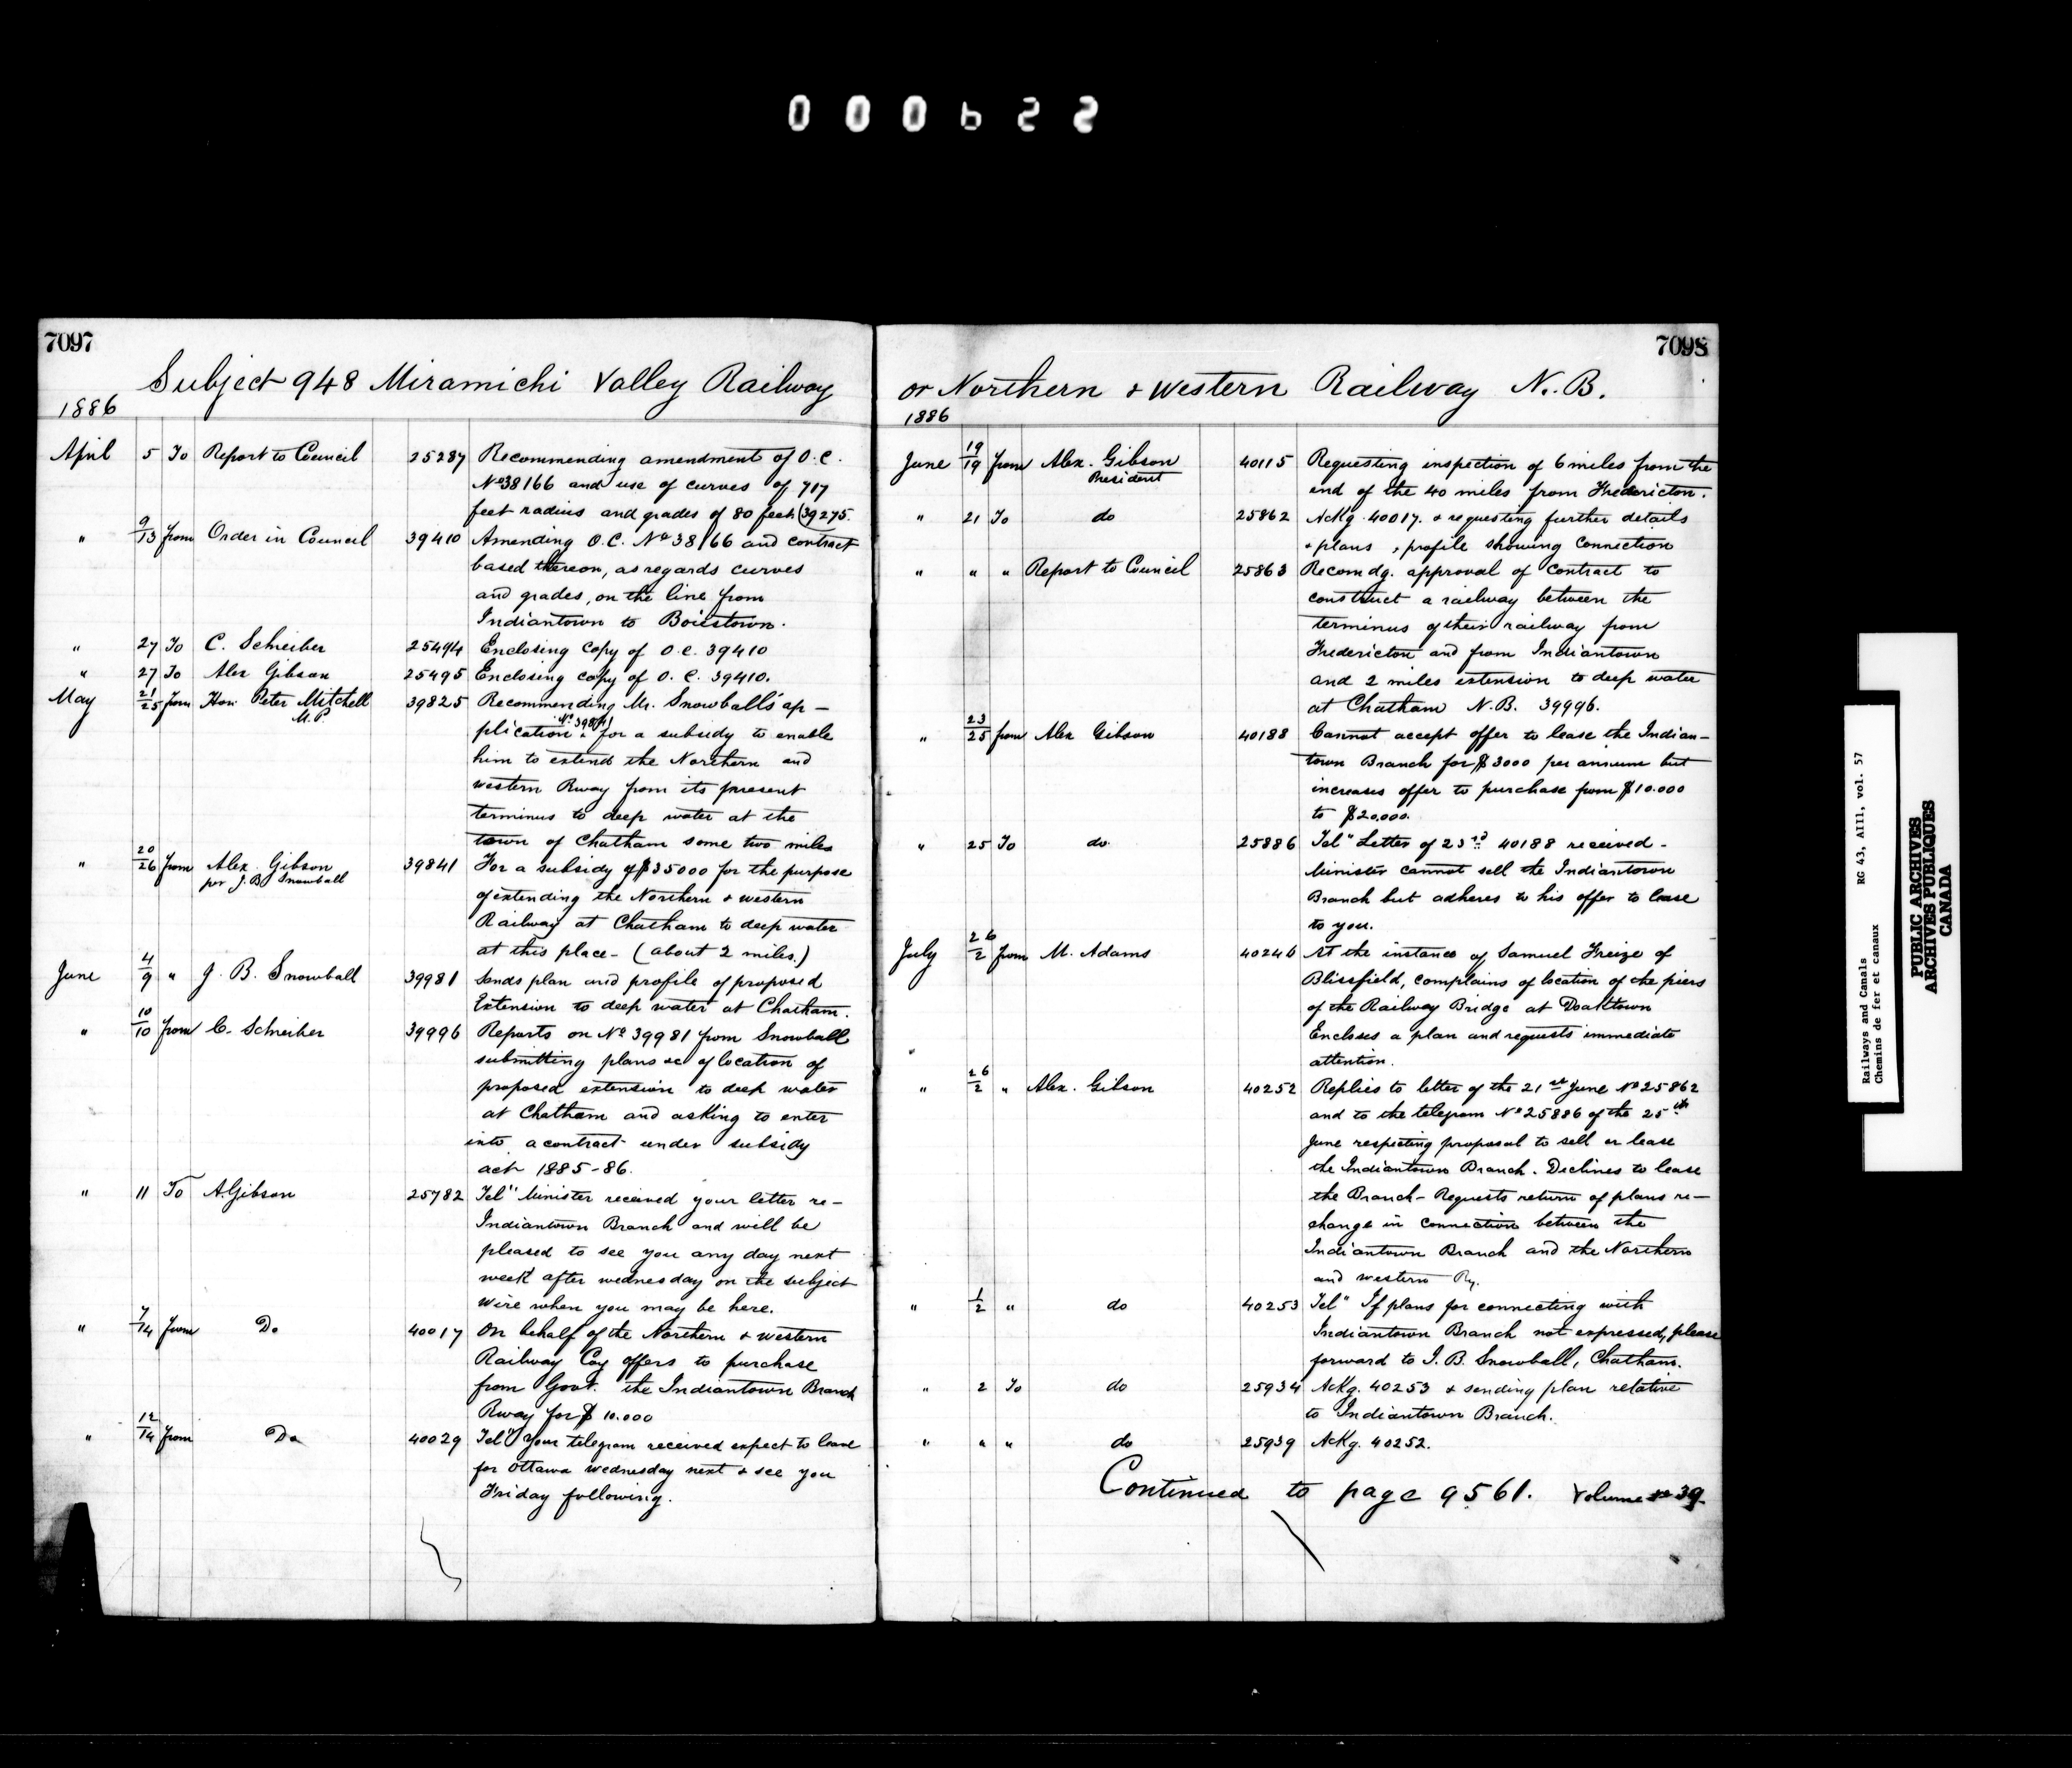 000622
7097
Subject 948 Miramichi Valley Railway
1886
April 5 To Report to Council 25287 Recommending amendment of O.C.
No 38166 and use of curves of 717
feet radius and grades of 80 feet (39275.
" 9/13 from Order in Council 39410 Amending O.C. No 38166 and contract
based thereon, as regards curves
and grades, on the line from
Indiantown to Boiestown.
" 27 To C. Schreiber 25494 Enclosing copy of O.C. 39410
" 27 To Alex Gibson 25495 Enclosing copy of O.C. 39410.
May 21/25 from Hon. Peter Mitchell 39825 Recommending Mr. Snowball's ap-
M.P.
plication for a subsidy to enable
him to extend the Northern and
western Rway from its present
terminus to deep water at the
town of Chatham some two miles
" 20/26 from Alex. Gibson 39841 For a subsidy of $35000 for the purpose
per J. B. Snowball
of extending the Northern & western
Railway at Chatham to deep water
at this place - (about 2 miles.)
June 4/9 " J. B. Snowball 39981 Sends plan and profile of proposed
Extension to deep water at Chatham.
" 10/10 from C. Schreiber 39996 Reports on No 39981 from Snowball
submitting plans &c of location of
proposed extension to deep water
at Chatham and asking to enter
into a contract under subsidy
act 1885-86.
" 11 To A. Gibson 25782 Tel" Minister received your letter re-
Indiantown Branch and will be
pleased to see you any day next
week after wednesday on the subject
wire when you may be here.
" 7/14 from Do 40017 On behalf of the Northern & western
Railway Coy offers to purchase
from Govt. the Indiantown Branch
Rway for $10.000
" 12/14 from Do 40029 Tel" Your telegram received expect to leave
for Ottawa wednesday next & see you
Friday following.
7098
or Northern & Western Railway N.B.
1886
June 19/19 from Alex. Gibson 40115 Requesting inspection of 6 miles from the
President
end of the 40 miles from Fredericton.
" 21 To do 25862 Ackg. 40017. & requesting further details
& plans, profile showing connection
" " " Report to Council 25863 Recomdg. approval of contract to
construct a railway between the
terminus of their railway from
Fredericton and from Indiantown
and 2 miles extension to deep water
at Chatham N.B. 39996.
" 23/25 from Alex Gibson 40188 Cannot accept offer to lease the Indian-
town Branch for $3000 per annum but
increases offer to purchase from $10.000
to $20.000.
" 25 To do 25886 Tel" Letter of 23rd 40188 received -
Minister cannot sell the Indiantown
Branch but adheres to his offer to lease
to you.
July 26/2 from M. Adams 40246 At the instance of Samuel Freize of
Blissfield, complains of location of the piers
of the Railway Bridge at Doaktown
Encloses a plan and requests immediate
attention.
" 26/2 " Alex. Gibson 40252 Replies to letter of the 21st June No 25862
and to the telegram No 25886 of the 25th
June respecting proposal to sell or lease
the Indiantown Branch. Declines to lease
the Branch - Requests return of plans re-
change in connection between the
Indiantown Branch and the Northern
and western Ry.
" 1/2 " do 40253 Tel" If plans for connecting with
Indiantown Branch not expressed, please
forward to J. B. Snowball, Chatham.
" 2 To do 25934 Ackg. 40253 & sending plan relative
to Indiantown Branch.
" " " do 25939 Ackg. 40252.
Continued to page 9561. Volume 39.
Railways and Canals RG 43, AIII, vol. 57
Chemins de fer et canaux
PUBLIC ARCHIVES
ARCHIVES PUBLIQUES
CANADA